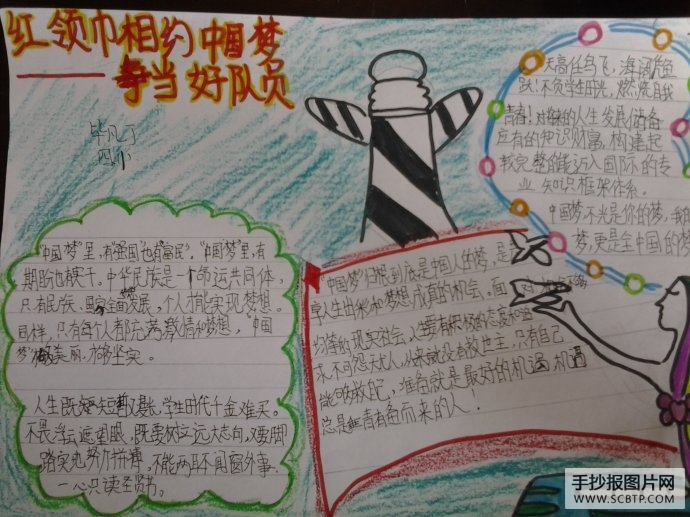 红领巾相约中国梦
——争当好队员
毕凡了
四小
天高任鸟飞,海阔凭鱼
跃!不负学生时光,燃烧自我
青春!对将来的人生发展储备
应有的知识财富,构建起
较完整的能迈入国际的专
业知识框架体系。
中国梦,不光是你的梦,我的
梦,更是全中国的梦
"中国梦"里,有"强国"也有"富民"。"中国梦"里,有
期盼也有实干。中华民族是一个命运共同体,
只有民族、国家全面发展,个人才能实现梦想。
同样,只有每个人都充满激情和梦想,"中国
梦"才能美丽,才够坚实。
人生既短又漫长,学生时代千金难买。
不畏浮云遮望眼,既要树立远大志向,又要脚
踏实地努力拼搏,不能两耳不闻窗外事,
一心只读圣贤书。
"中国梦"归根到底是中国人的梦,是
享人生出彩和梦想成真的机会。面对
的现实社会,人要有积极的态度和追
求,不可怨天尤人,从来就没有救世主,只有自己
能够救自己,准备就是最好的机遇,机遇
总是为有备而来的人!
手抄报图片网
WWW.SCBTP.COM